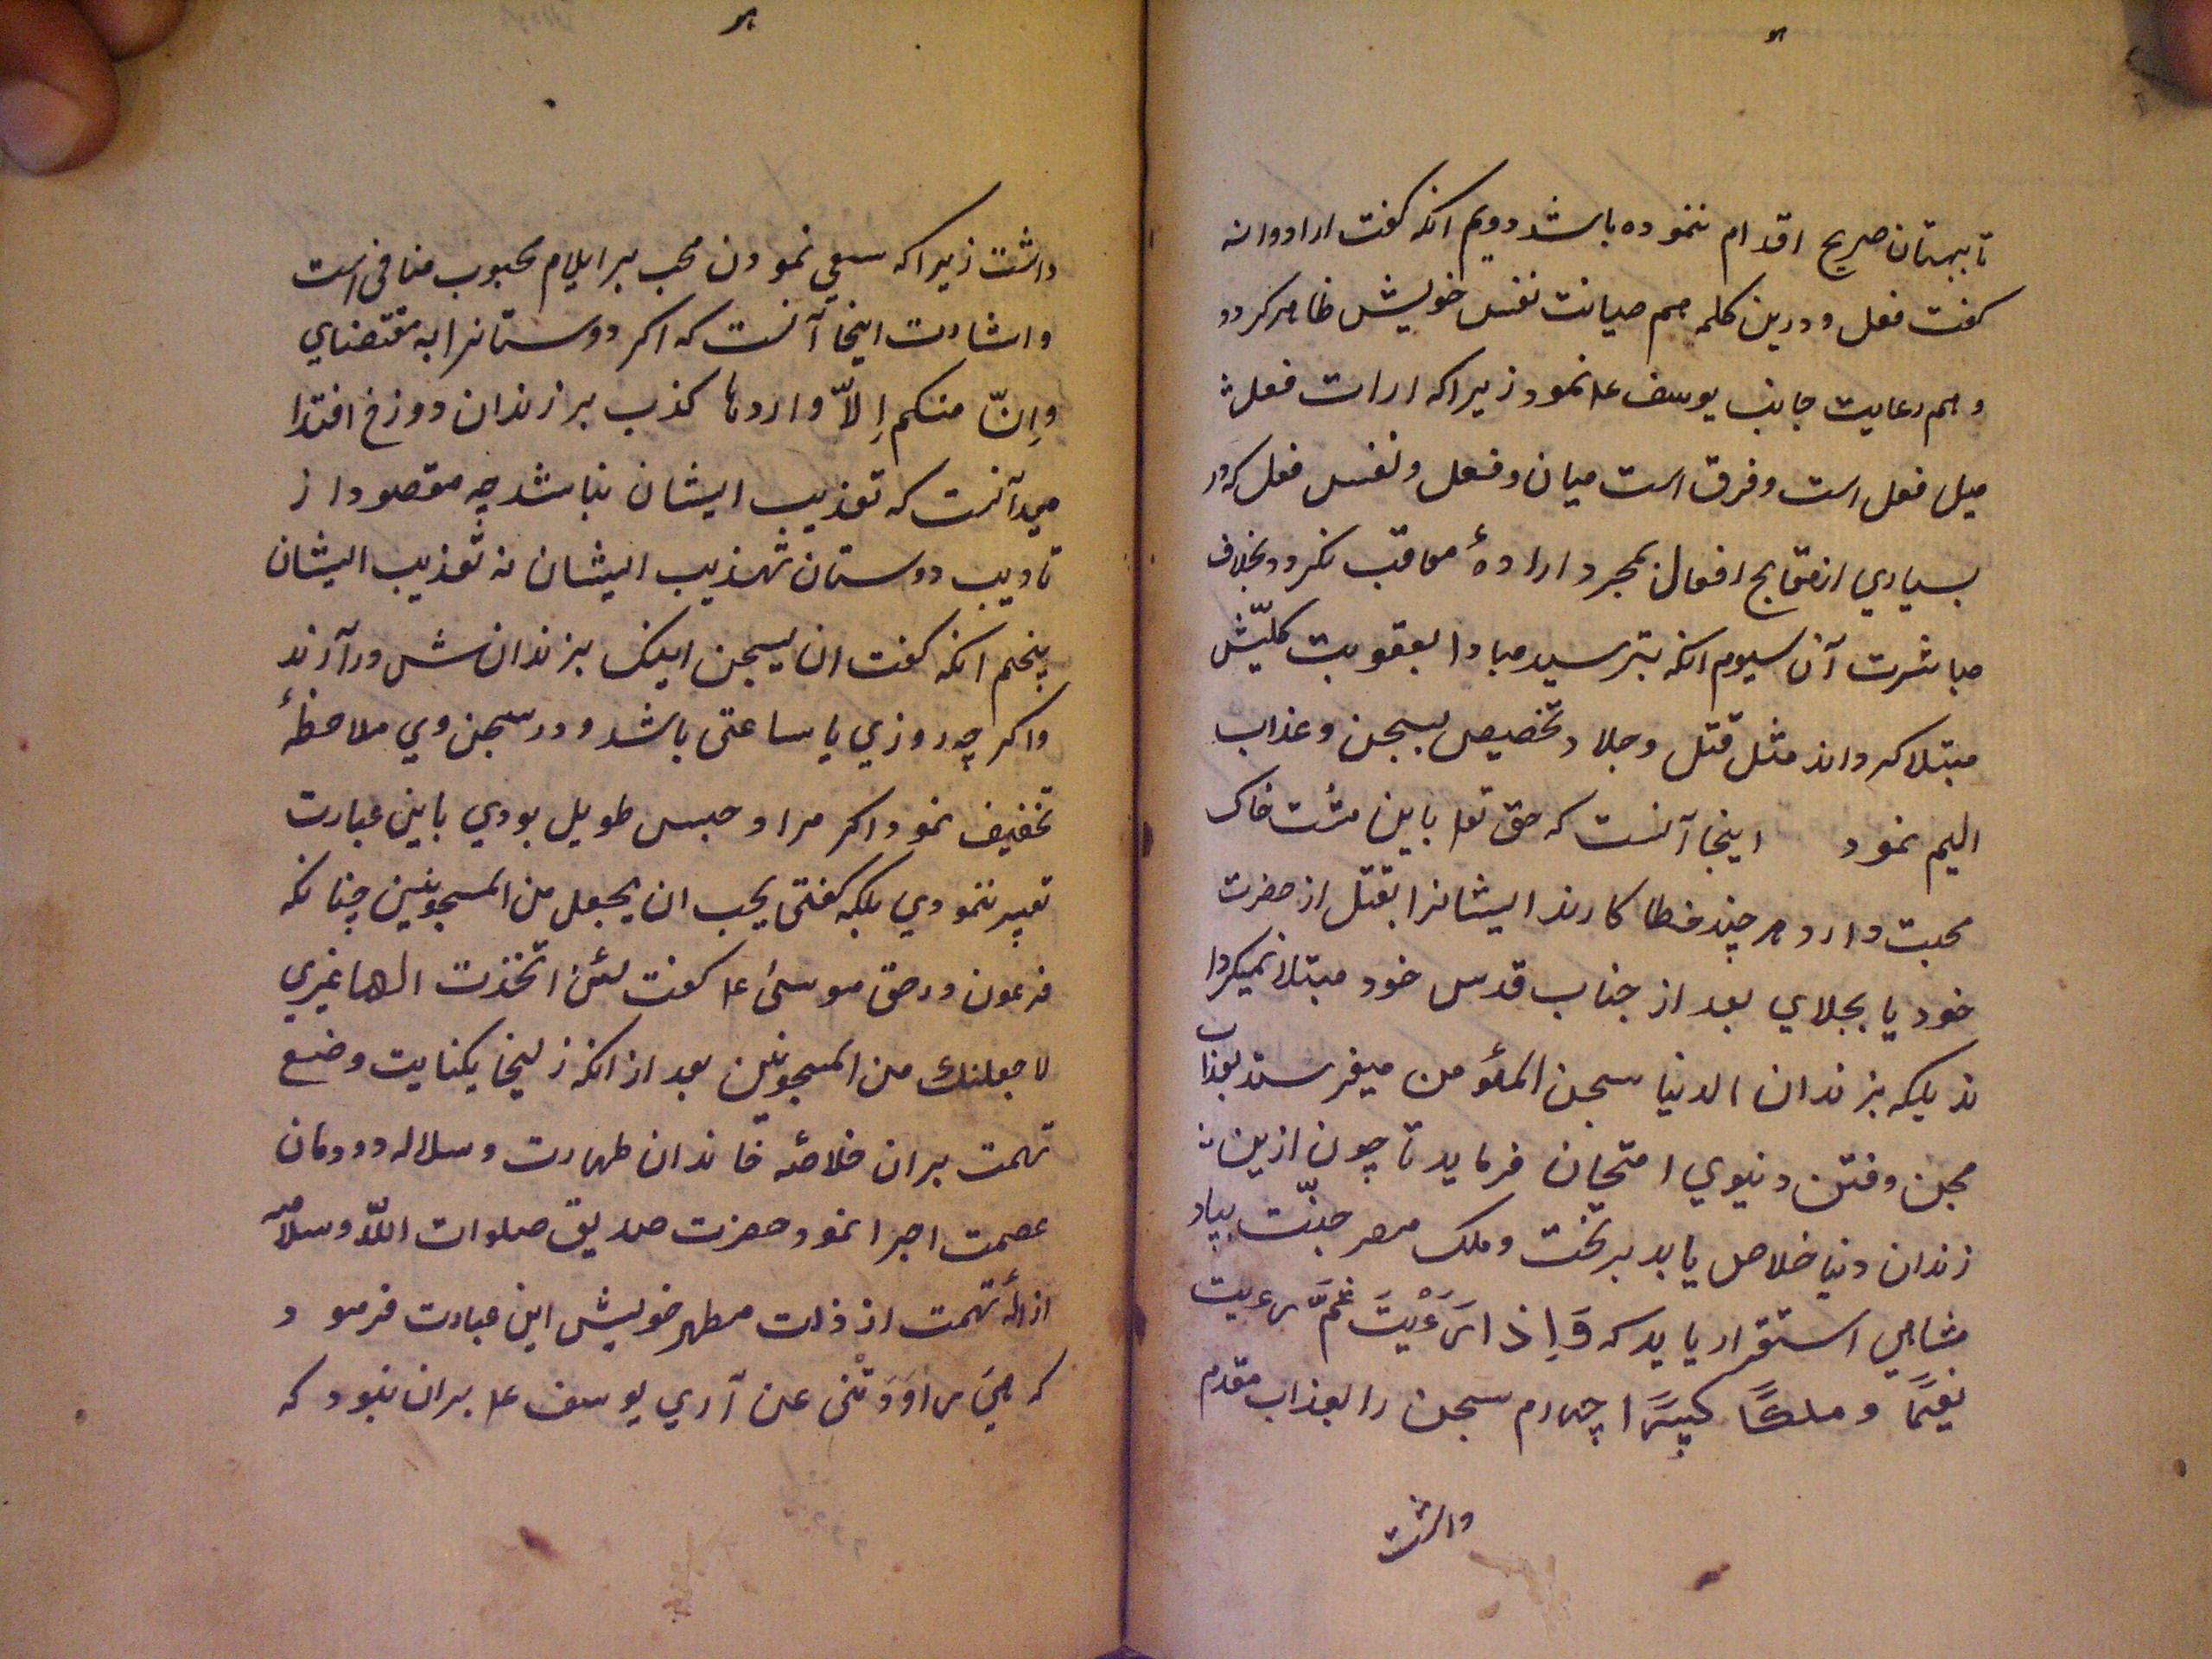 تا ببهتان صریح اقدام ننموده باشد دویم انکه کفت اراد وانه
کفت فعل و درین کلمه هم صیانت نفس خویش ظاهر کردد
و هم رعایت جانب یوسف ع۱ نمود زیراکه ارات فعل
میل فعل است و فرق است میان و فعل و نفس فعل که در
بسیاری از قبایح افعال بمجرد ارادهٔ معاقب نکردد بخلاف
مباشرت آن سیوم انکه بترسید مبادا بعقوبت کلیّش
مبتلا کردانند مثل قتل و جلا و تخصیص بسجن و عذاب
الیم نمود اینجا آنست که حق تع۱ باین مشت خاک
محبت دارد هر چند خطا کارند ایشانرا بقتل از حضرت
خود یا بجلای بعد از جناب قدس خود مبتلا نمیکردا
ند بلکه بزندان الدنیا سجن المؤمن میفرستد بعذاب
محن و فتن دنیوی امتحان فرماید تا چون ازین
زندان دنیا خلاص یابد بر تخت و ملک مصر جنّت بپاد
شاهی استقرار یابد که وَاِذا رَءَیْتَ ثَمَّ رءیت
نعیمًا و ملکًا کبیرًا چهارم سجن را بعذاب مقدم
داشت
داشت زیراکه سعی نمودن محب بر ایلام محبوب منافی است
و اشارت اینجا آنست که اکر دوستانرا به مقتضای
وَاِنّ منکم اِلاّ واردها کذب بر زندان دوزخ افتد ا
مید آنست که تعذیب ایشان نباشد چه مقصود از
تادیب دوستان تهذیب ایشان نه تعذیب ایشان
پنجم انکه کفت ان یسجن اینک بزندانش درآرند
و اکر چه روزی یا ساعتی باشد و در سجن وی ملاحظهٔ
تخفیف نمود اکر مراد حبس طویل بودی باین عبارت
تعبیر ننمودی بلکه کفتی یجب ان یجعل من المسجونین چنانکه
فرعون در حق موسیٰ ع۱ کفت لئن اتخذت الها غیری
لاجعلنك من المسجونین بعد از انکه زلیخا بکنایت وضع
تهمت بر ان خلاصهٔ خاندان طهارت و سلاله دودمان
عصمت اجرا نمود حضرت صدیق صلوات اللّه و سلامه
ازالهٔ تهمت از ذات مطهر خویش این عبارت فرمود
که هیَ راوَدَتْنی عن آری یوسف ع۱ بران نبود که